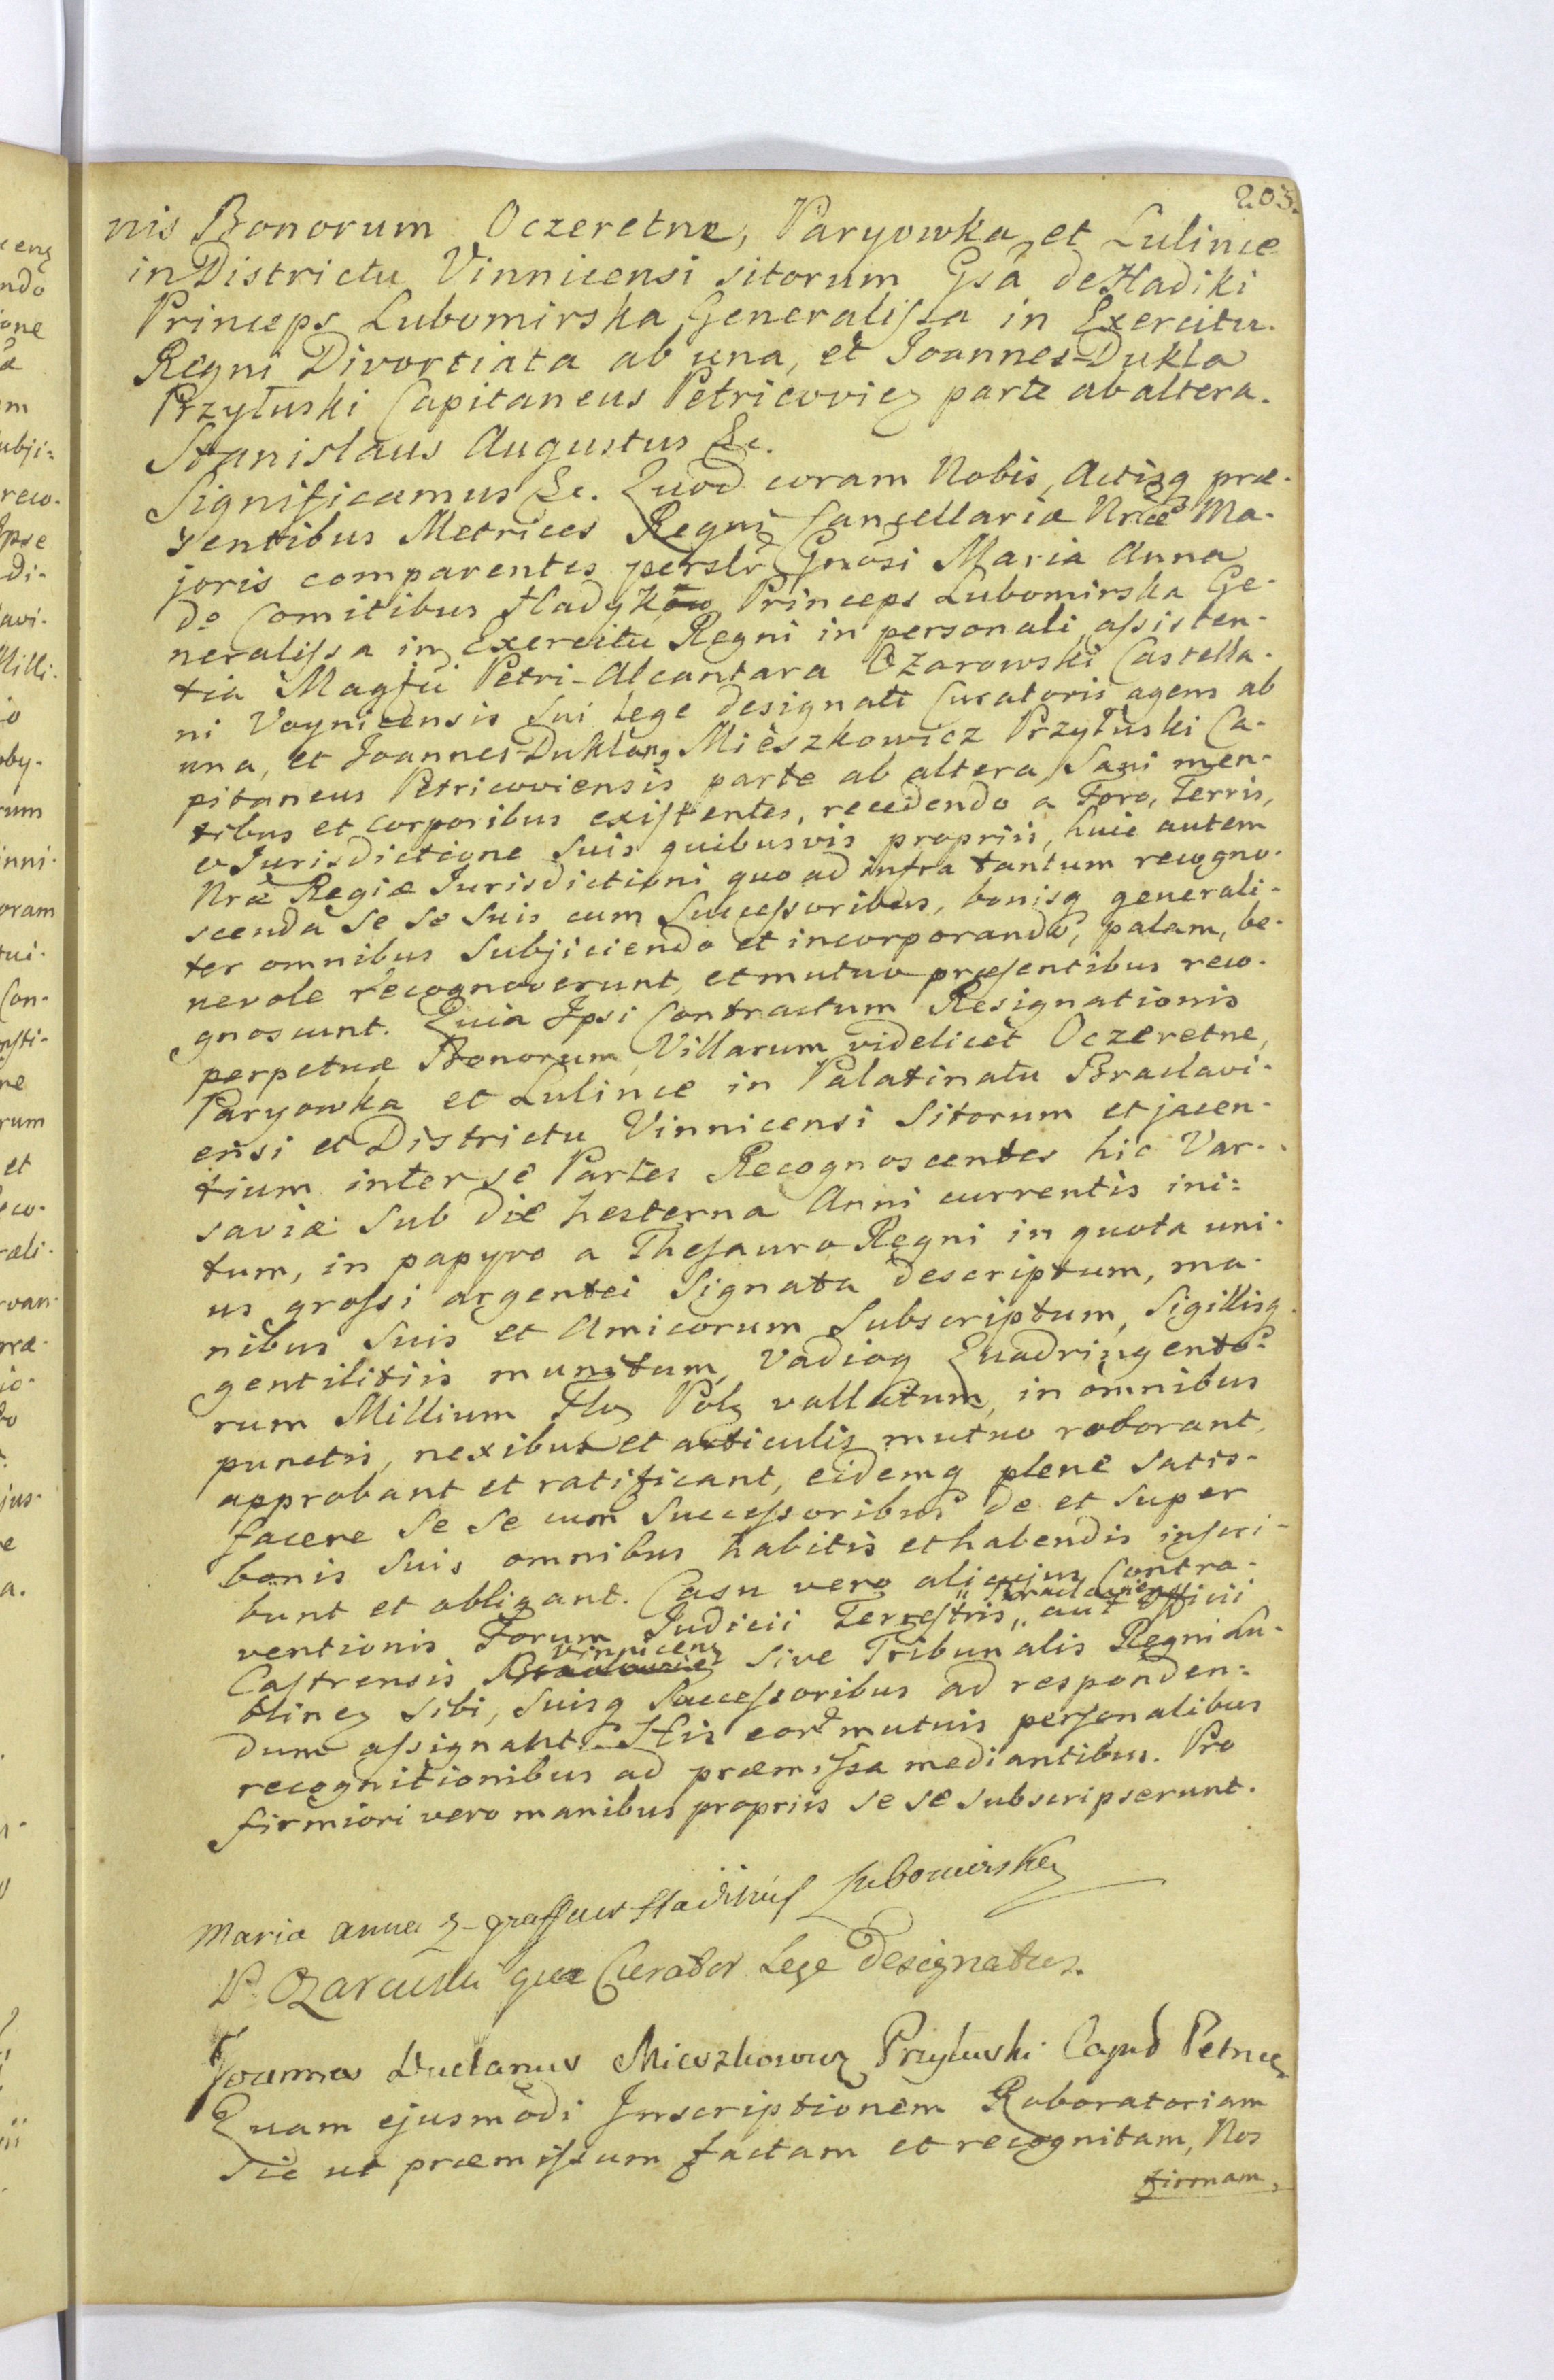 203.
nis Bonorum Oczeretne, Paryowka et Lulince
in Districtu Vinnicensi sitorum Gsa de Hadiki
Princeps Lubomirska Generalissa in Exercitu
Regni Divortiata ab una, et Joannes-Dukla
Przyłuski Capitaneus Petricovien parte ab altera.
Stanislaus Augustus &c.
Significamus &c. Quod coram Nobis, Actisq præ-
sentibus Metrices Regni Cancellariæ Nræ Ma-
joris comparentes perslr Gnosi Maria Anna
de Comitibus Hadyków Princeps Lubomirska Ge-
neralissa in Exercitu Regni in personali assisten-
tia Magfci Petri-Alcantara Ożarowski Castella-
ni Voynicensis sui Lege designati Curatoris agens ab
una, et Joannes-Duklany Mieszkowicz Przyłuski Ca-
pitaneus Petricoviensis parte ab altera, Sani men-
tibus et corporibus existentes, recedendo a Foro, Terris,
et Jurisdictione suis quibusvis propriis, huic autem
Nræ Regiæ Jurisdictioni quo ad infra tantum recogno-
scenda se se suis cum successoribus, bonisq generali-
ter omnibus subjiciendo et incorporando, palam, be-
nevole recognoverunt, et mutuo præsentibus reco-
gnoscunt. Quia Ipsi Contractum Resignationis
perpetuæ Bonorum, Villarum videlicet Oczeretne,
Paryowka et Lulince in Palatinatu Braclavi-
ensi et Districtu Vinnicensi sitorum et jacen-
tium inter se Partes Recognoscentes hic Var-
saviæ sub die hesterna Anni currentis ini=
tum, in papyro a Thesauro Regni in quota uni-
us grossi argentei signata descriptum, ma-
nibus suis et Amicorum subscriptum, sigillisq
gentilitiis munitum, vadioq Quadringento=
rum Millium Flor Pol vallatum, in omnibus
punctis, nexibus et articulis mutuo roborant,
approbant et ratificant, eidemq plene satis-
facere se se cum successoribus de et super
bonis suis omnibus habitis et habendis inscri-
bunt et obligant. Casu vero alicujus Contra-
ventionis Forum Judicii Terrestris, " Braclavien aut Officii
Castrensis Vinnicen sive Tribunalis Regni Lu-
blinen sibi, suisq successoribus ad responden=
dum assignant. His eor mutuis personalibus
recognitionibus ad præmissa mediantibus. Pro
firmiori vero manibus propriis se se subscripserunt.
Maria Anna z Lubomirska
P. Ozarowski qua Curator Lege Designatus.
Joannes Duclanus Mieszkowicz Przyłuski
Quam ejusmodi Inscriptionem Roboratoriam
sic ut præmissum factam et recognitam, Nos
firmam,